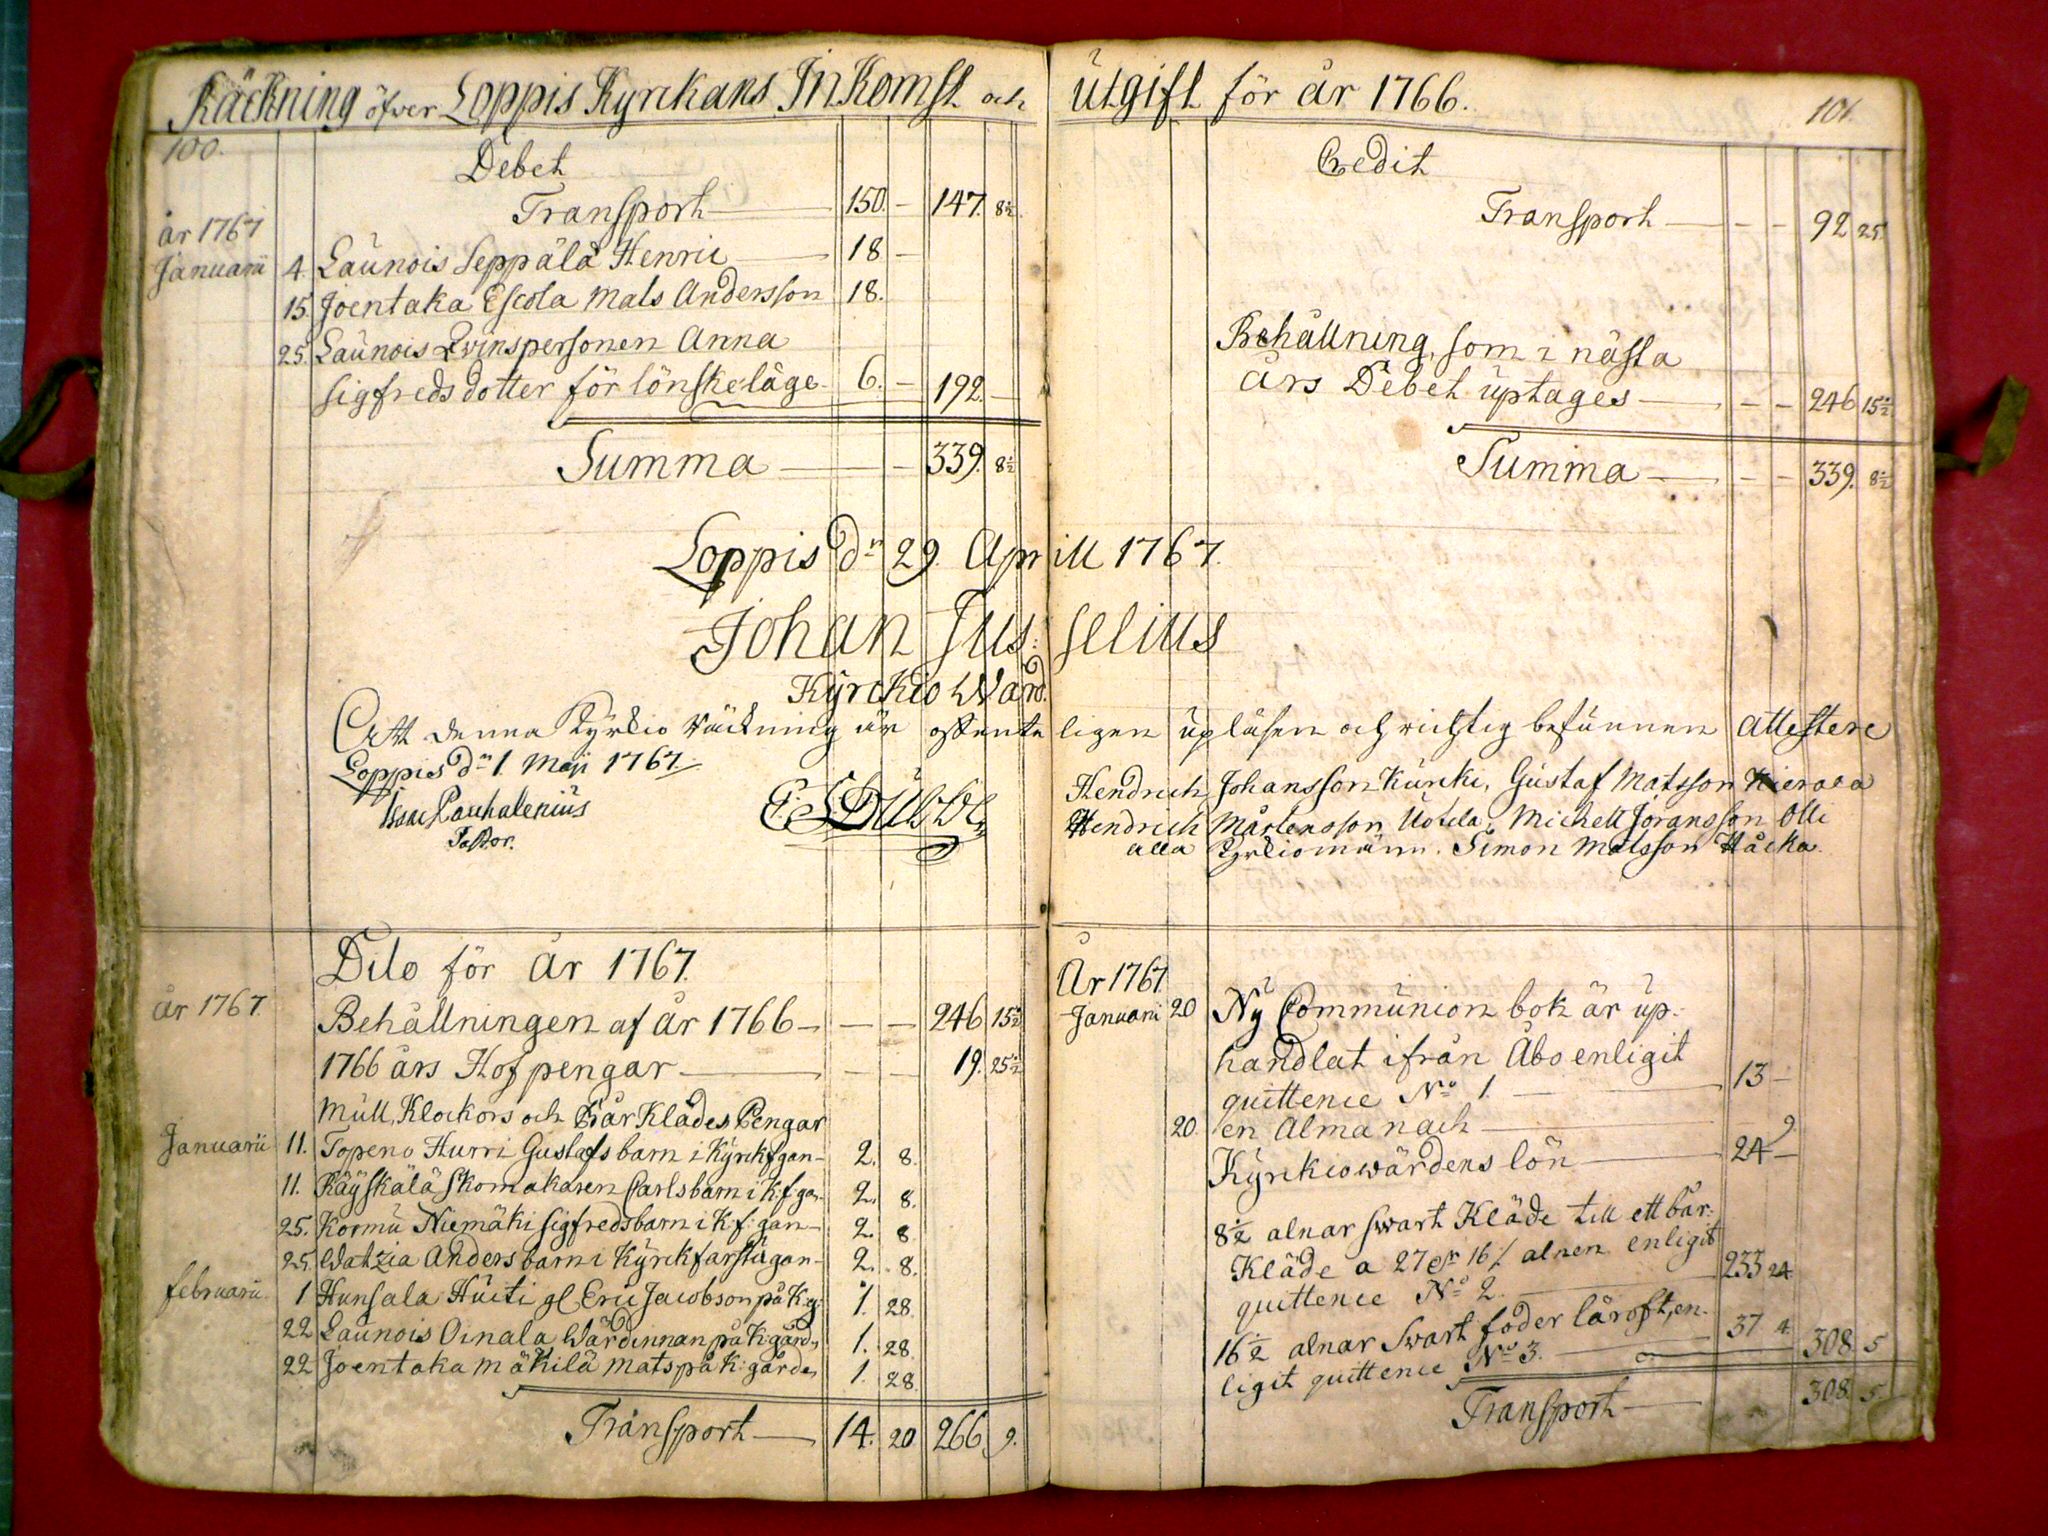 Räckning öfver Loppis Kyrckans Inkomst och
100.
Debet
Transport 150. – 147. 8½.
år 1767
Januarii 4. Launois Seppälä Henric 18 –
15. Joentaka Escola Mats Andersson 18.
25. Launois Qvinspersonen Anna
Sigfredsdotter för lönskeläge 6. – 192. –
Summa – 339. 8½
utgift för år 1766.
101.
Credit
Transport – – 92 25.
Behållning, som i nästa
års Debet uptages – – 246 15½
Summa – – 339. 8½
Loppis dn 29. Aprill 1767.
Johan Jus: selius
Kyrckio Wärd.
Att denna Kyrkio Räckning är offenteligen upläsen och richtig befunnen attestere
Loppis dn 1. Maji 1767.
Isaac Pauhalenius
Pastor.
Hendrich Johansson Kurcki, Gustaf Matsson Hierara
Hendrich Mårtensson Uotila, Michell Jöransson Olli
alla Kyrkiomänn. Simon Matsson Håcka.
Dito för år 1767.
år 1767. Behållningen af år 1766 – – 246 15½
1766 års Hofpengar – – 19. 25½
Mull, Klockors och Bår Klädes Pengar
Januarii 11. Topeno Hurri Gustafs barn i Kyrckfgan 2. 8.
11. Räyskälä Skomakaren Carls barn i K:f:gan 2. 8.
25. Kormu Niemäki Sigfreds barn i K:f:gan 2. 8
25. Watzia Anders barn i Kyrckfarstugan 2. 8.
februarii 1 Hunsala Huiti gl Eric Jacobson på K:g: 1. 28.
22 Launois Oinala Wärdinnan på K:gård 1. 28.
22 Joentaka Mäkilä Mats på K:gårde 1. 28.
Transport 14. 20 266. 9.
År 1767
Januarii 20 Ny Communion bok är up-
handlat ifrån Åbo enligit
quittence No 1. 13 –
20. en Almanach 9.
Kyrkiowärdens lön 24 –
8½ alnar swart Kläde till ett bår:
Kläde a 27 dr 16/ alnen enligit
quittence No 2. 233 24
16½ alnar Swart foder läroft, en-
ligit quittence No 3. 37 4. 308. 5
Transport 308. 5.